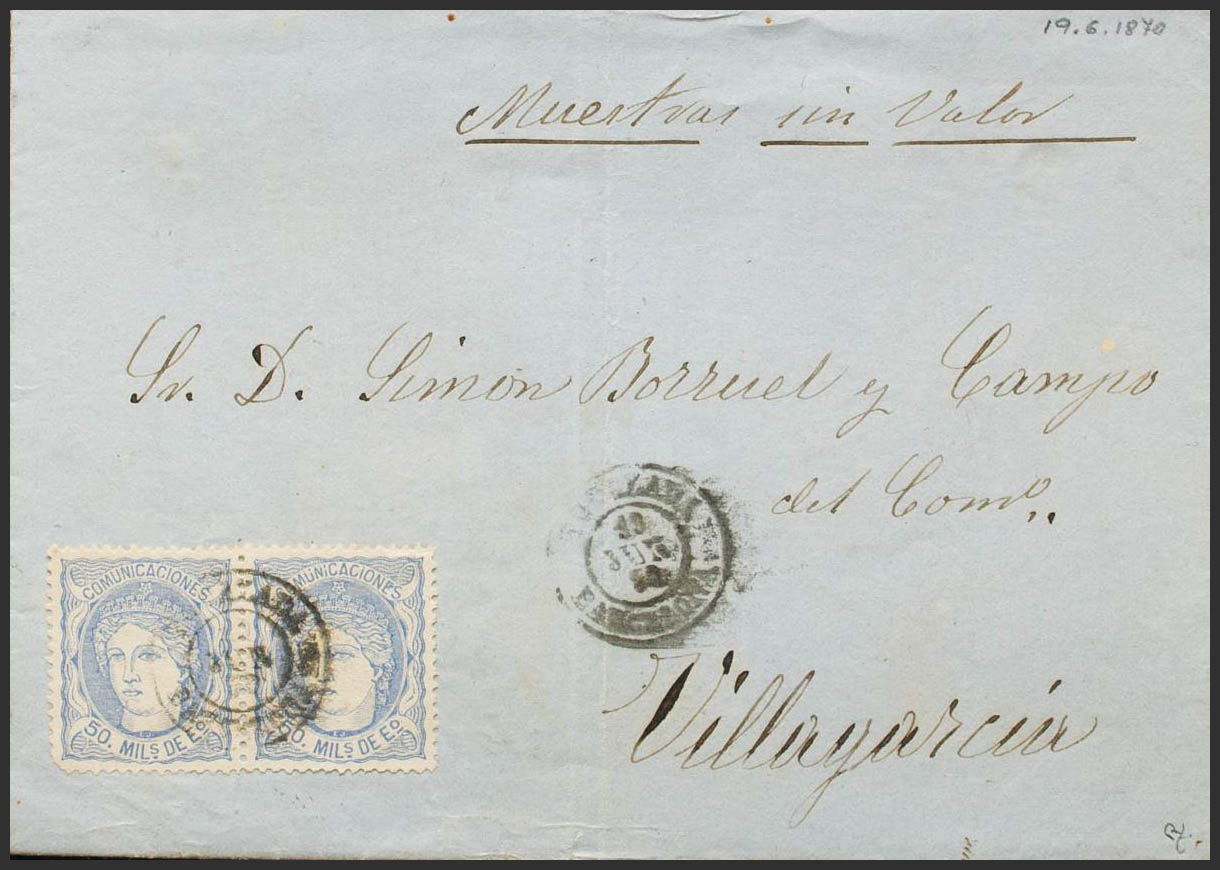 19.6.1870
Muestras sin Valor
Sr. D. Simon Borruel y Campo
del Como..
Villagarcia
BARCELONA
COMUNICACIONES
50. MILS DE Eo
COMUNICACIONES
50. MILS DE Eo